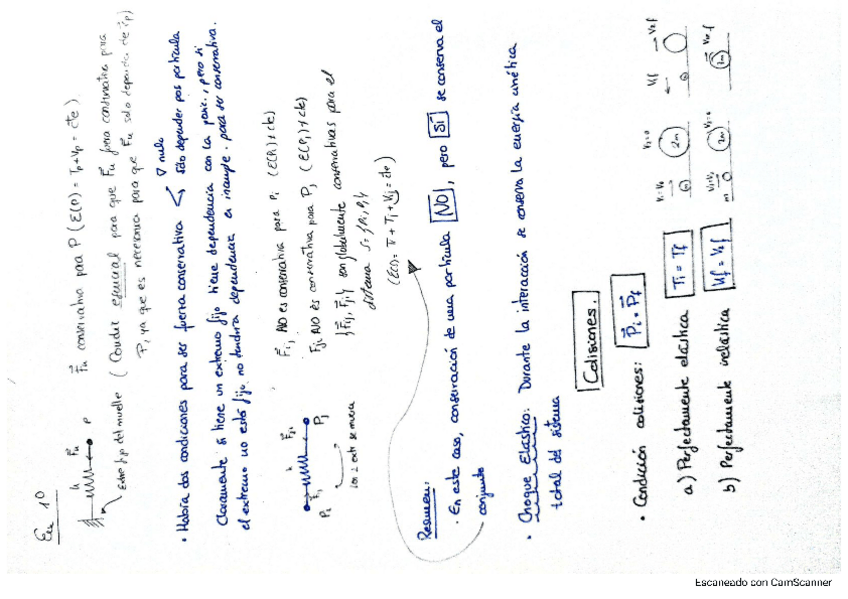 Eu 10
F⃗u conservativa para P (E(P) = Tp+Vp = cte).
Extremo fijo del muelle ( Condic. esencial para que F⃗u fuera conservativa para
P, ya que es necesario para que F⃗u solo dependa de r⃗p)
k F⃗u P
∇ nulo
• Había dos condiciones para ser fuerza conservativa < sólo depender pos partícula
Claramente si tiene un extremo fijo tiene dependencia con la partíc., pero si
el extremo no está fijo no tendría dependencia e incumple para ser conservativa.
F⃗ij NO es conservativa para Pi (E(Pi) ≠ cte)
F⃗ji NO es conservativa para Pj (E(Pj) ≠ cte)
{F⃗ij, F⃗ji} son globalmente conservativas para el
sistema S={Pi, Pj}
(E(S) = Ti + Tj + Vij = cte)
Pi F⃗ij k F⃗ji Pj
Los 2 extr se mueven
Resumen:
• En este caso, conservación de una partícula NO, pero SI se conserva el
conjunto
• Choque Elástico: Durante la interacción se conserva la energía cinética
total del sistema
Colisiones.
• Condición colisiones: P⃗i = P⃗f
a) Perfectamente elástica Ti = Tf
b) Perfectamente inelástica U1f = V2f
Escaneado con CamScanner